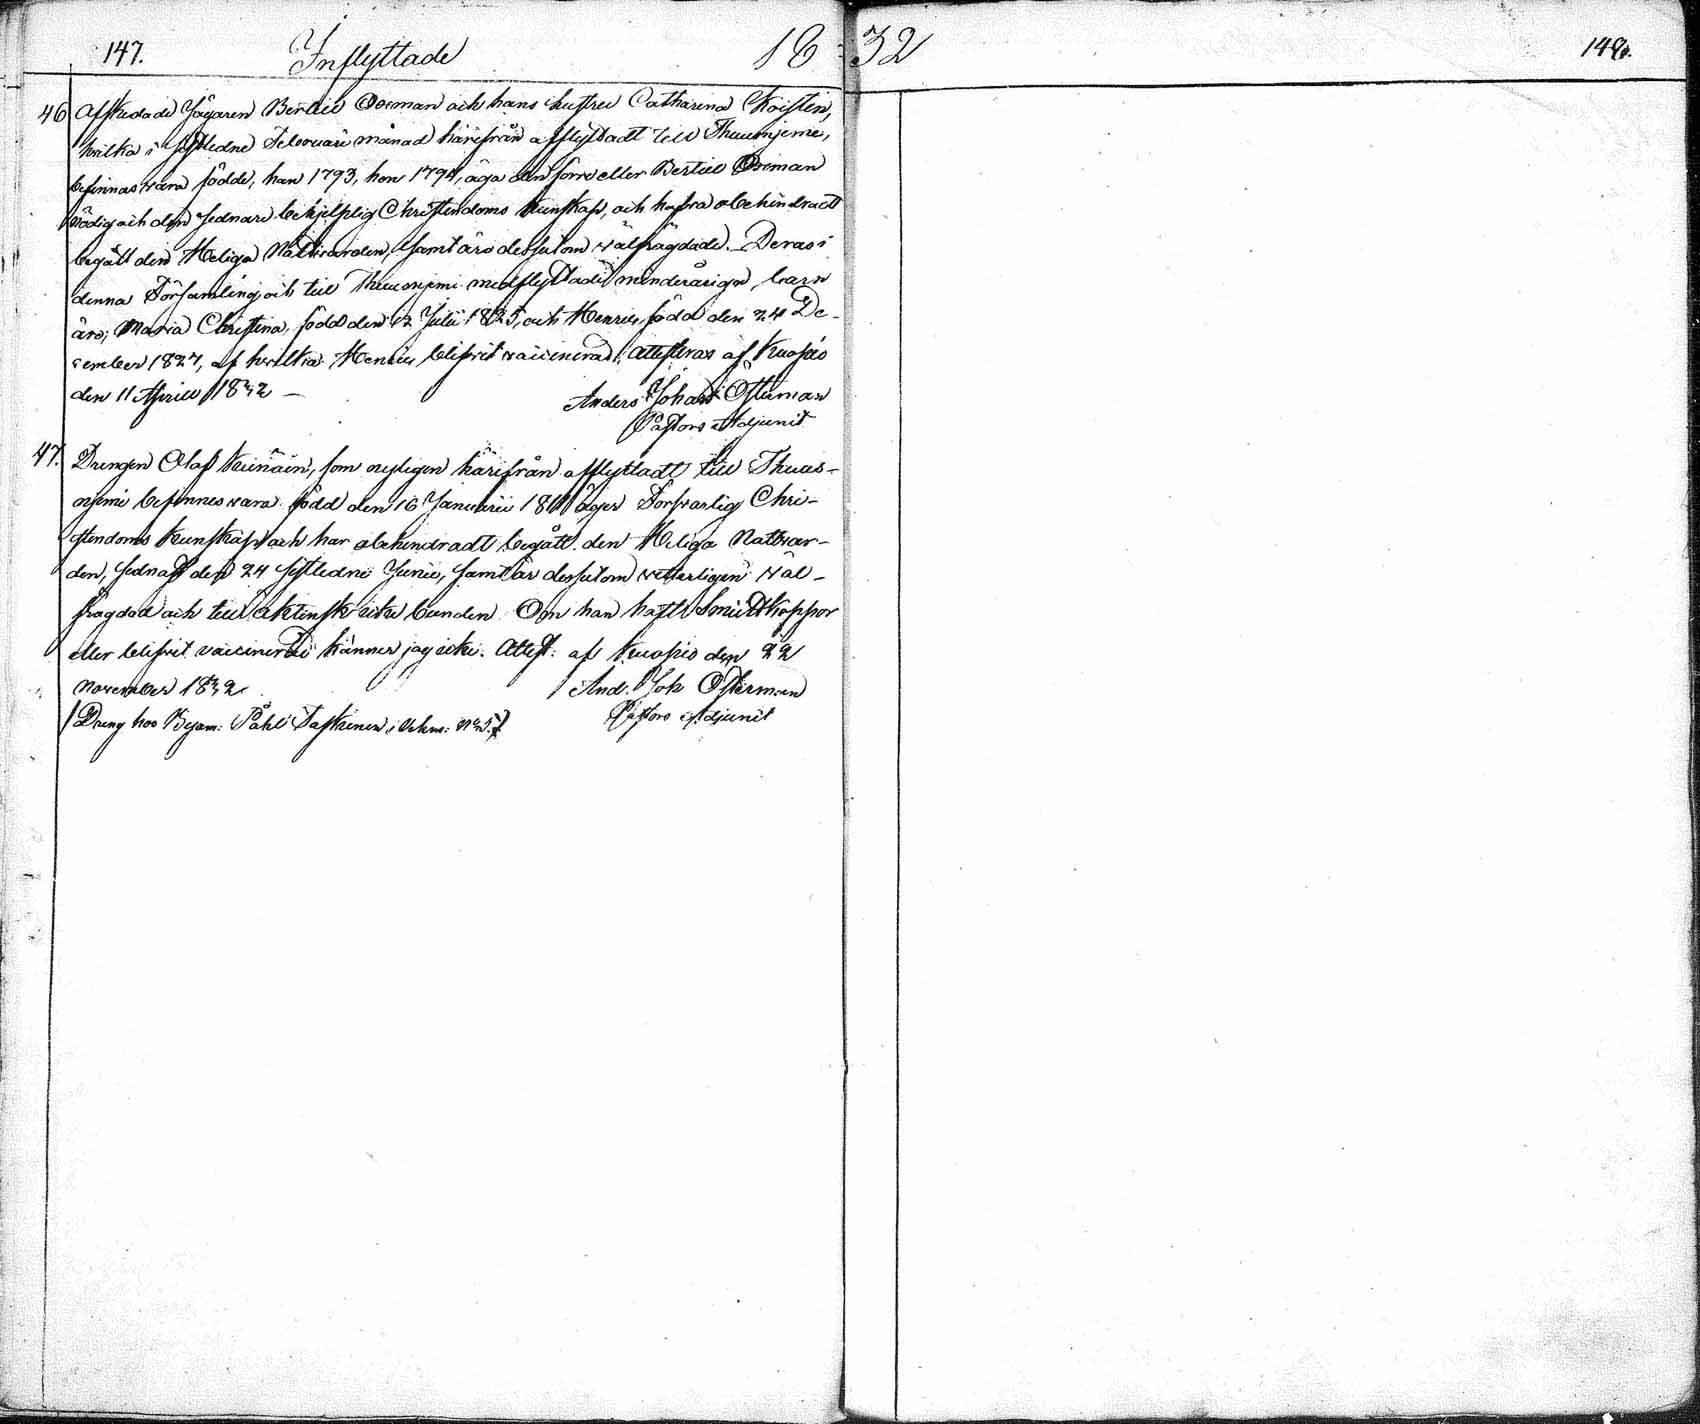 147. Inflyttade 18
32 148.
46 Afskedade Jägaren Bertill Oxman och hans hustru Catharina Koistin,
hvilka i sistledne Februari månad härifrån afflyttadt till Thuusnjemi,
befinnas vara födde, han 1793, hon 1794, äga den förre eller Bertill Oxman
nödig och den sednare behjelplig Christendoms kunskap, och hafva obehindradt
begått den Heliga Nattvarden, samt äro dessutom välfrägdade. Deras i
denna Församling och till Thuusnjemi medflyttade minderåriga barn
äro; Maria Christina, född den 12 Julii 1825, och Henric, född den 24 De-
cember 1827, af hvilka Henric blifvit vaccinerad; attesteras af Kuopio
den 11 Aprill 1832 —
Anders Johan Österman
Pastors Adjunct
47. Drengen Olaf Keinäin, som nyligen härifrån afflyttadt till Thuus-
njemi befinnes vara född den 16 Januarii 1811 äger Försvarlig Chri-
stendoms kunskap och har obehindradt begått den Heliga Nattvar-
den, sednast den 24 sistledne Junii, samt är dessutom vetterligen väl-
fragdad och till äktensk: icke bunden. Om han haft Smittkoppor
eller blifvit vaccinerad känner jag icke. Attest: af Kuopio den 22
November 1832.
And. Joh Österman
Pastors Adjunct
(Dreng hos Byam: Påhl Taskinen i Vehm: N:o 5.)